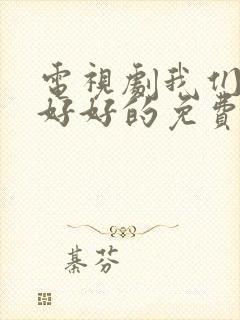 電視劇我们
好好的免費
綦芬